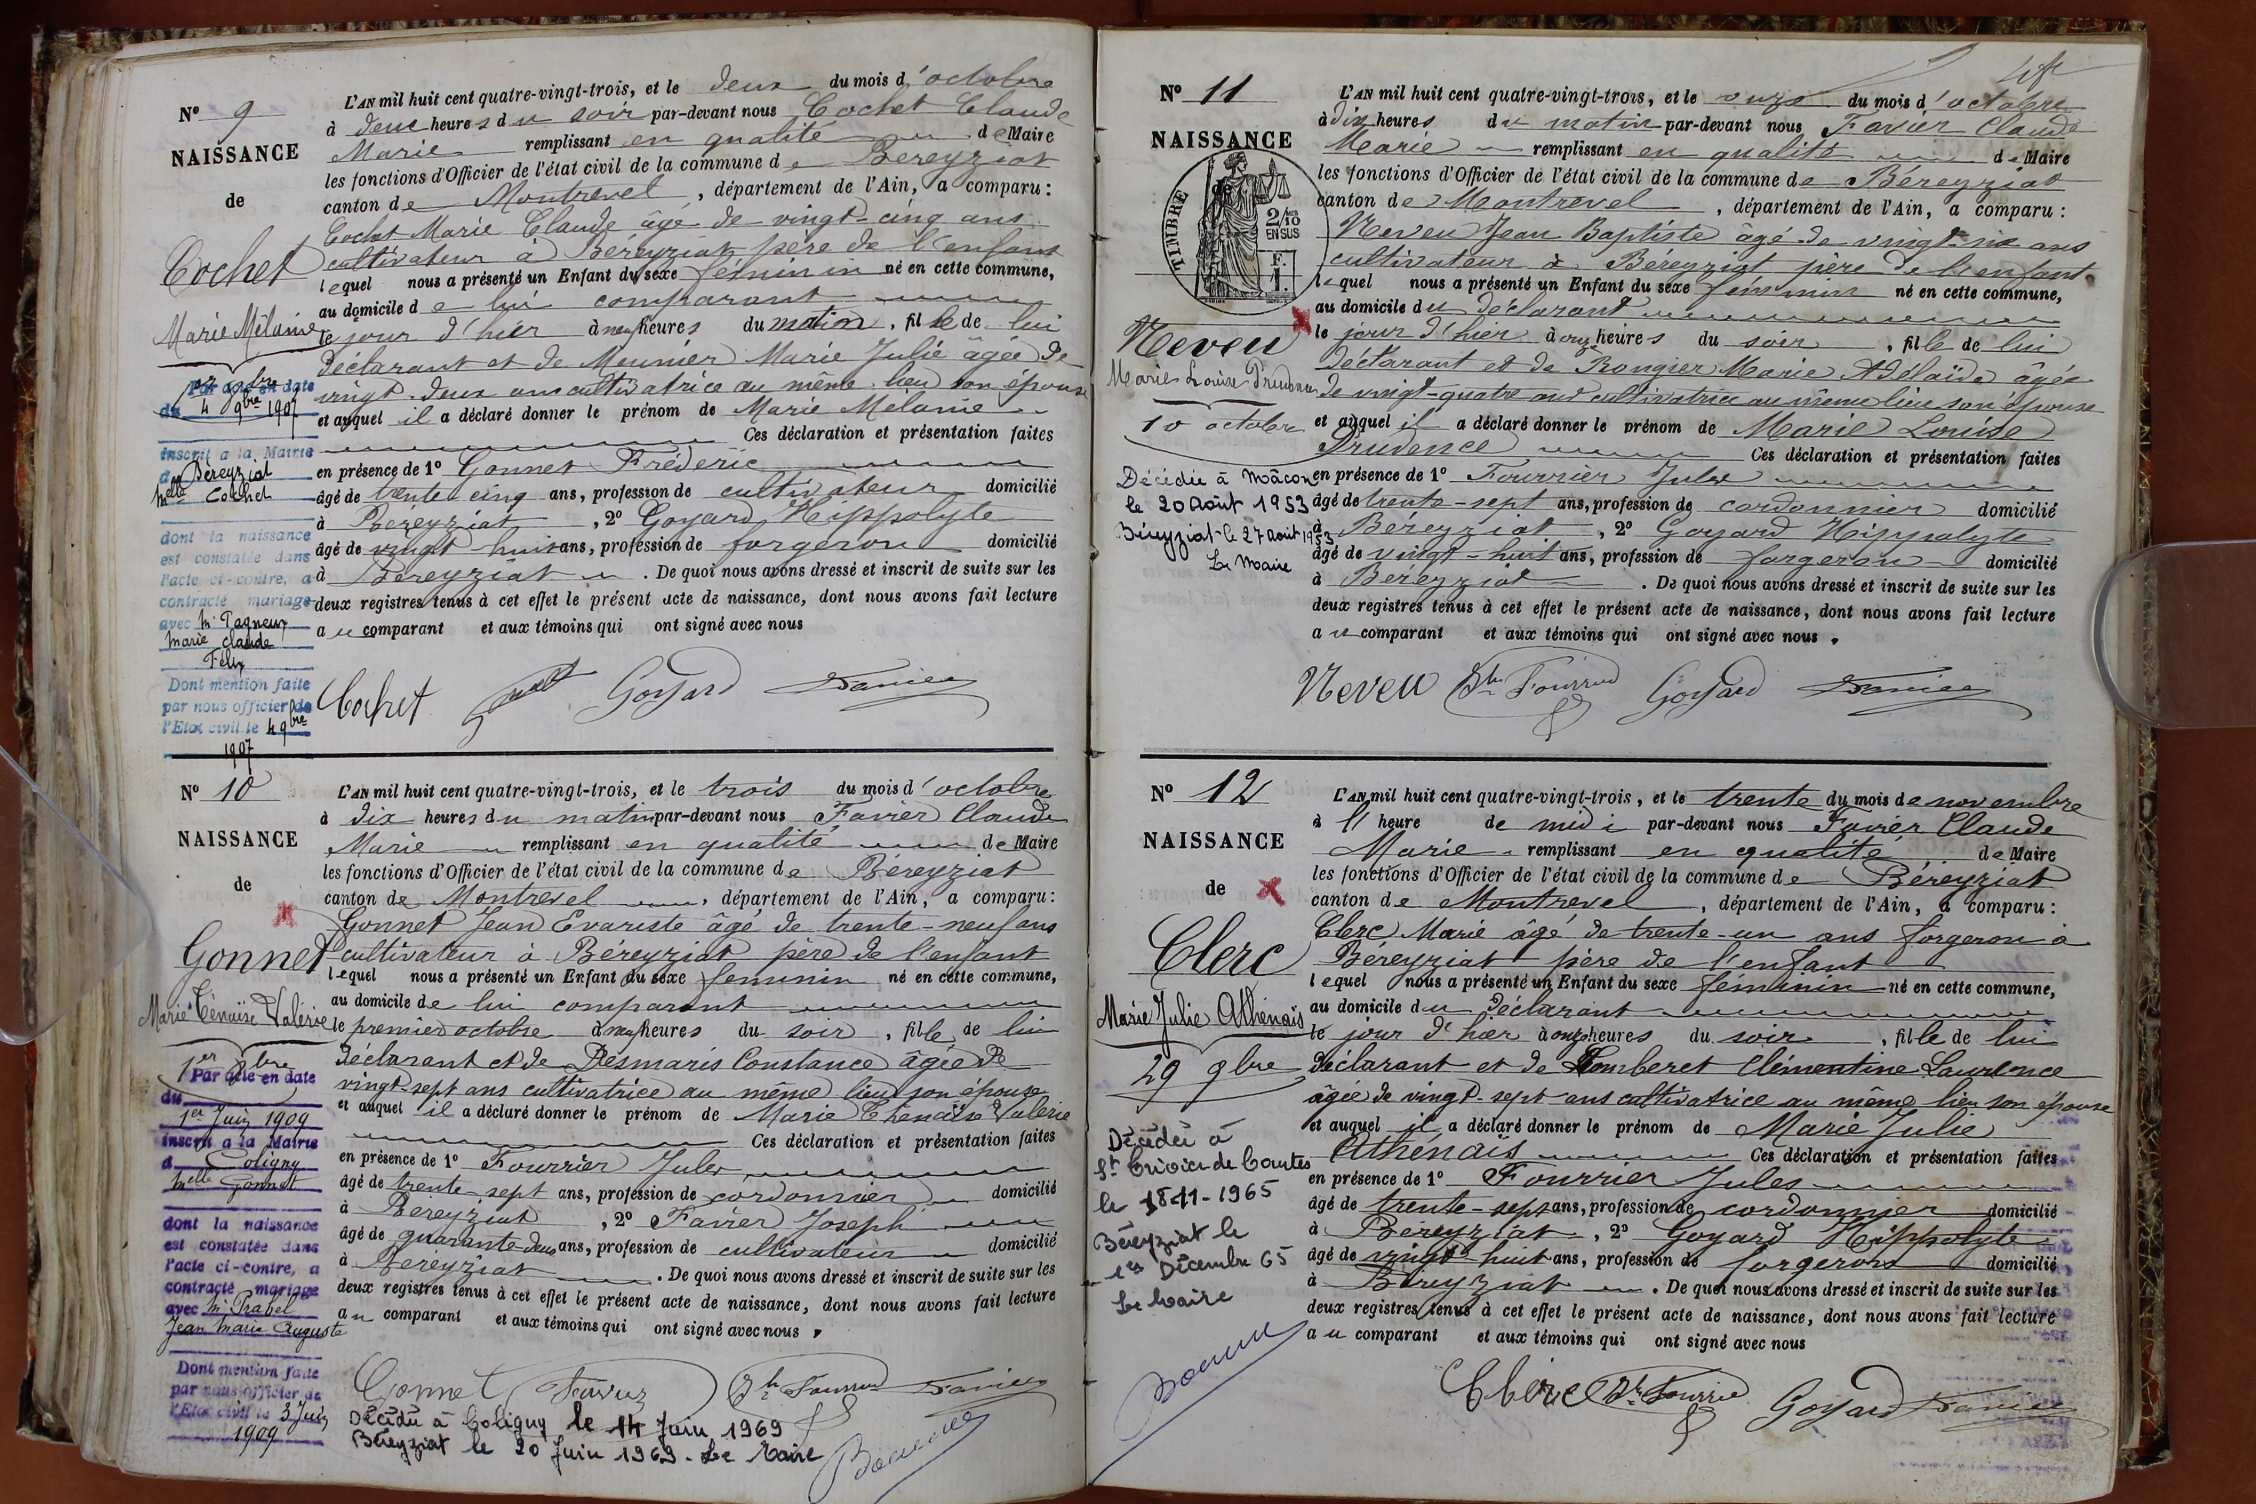 N° 9
NAISSANCE
de
Cochet
Marie Mélanie
1er 8bre
Par acte en date
du 4 9bre 1907
inscrit a la Mairie
de Béreyziat
Melle Cochet
dont la naissance
est constatée dans
l'acte ci-contre, a
contracté mariage
avec Mr Pagneux
Marie Claude
Félix
Dont mention faite
par nous officier de
l'Etat civil le 4 9bre
1907
L'AN mil huit cent quatre-vingt-trois, et le deux du mois d'octobre
à deux heures du soir par-devant nous Cochet Claude
Marie remplissant en qualité de Maire
les fonctions d'Officier de l'état civil de la commune de Béreyziat
canton de Montrevel, département de l'Ain, a comparu:
Cochet Marie Claude âgé de vingt-cinq ans
cultivateur à Béreyziat père de l'enfant
lequel nous a présenté un Enfant du sexe féminin né en cette commune,
au domicile de lui comparant
le jour d'hier à neuf heures du matin, fille de lui
déclarant et de Meunier Marie Julie âgée de
vingt-deux ans cultivatrice au même lieu son épouse
et auquel il a déclaré donner le prénom de Marie Mélanie
Ces déclaration et présentation faites
en présence de 1° Gonnet Fréderic
âgé de trente cinq ans, profession de cultivateur domicilié
à Béreyziat, 2° Goyard Hippolyte
âgé de vingt-huit ans, profession de forgeron domicilié
à Béreyziat. De quoi nous avons dressé et inscrit de suite sur les
deux registres tenus à cet effet le présent acte de naissance, dont nous avons fait lecture
au comparant et aux témoins qui ont signé avec nous
Cochet Goyard Favier
N° 10
NAISSANCE
de
Gonnet
Marie Thénaïse Valérie
1er 8bre
Par acte en date
du
1er Juin 1909
inscrit a la Mairie
d Coligny
Melle Gonnet
dont la naissance
est constatée dans
l'acte ci-contre, a
contracté mariage
avec Mr Prabel
Jean Marie Auguste
Dont mention faite
par nous officier de
l'Etat civil le 3 Juin
1909
L'AN mil huit cent quatre-vingt-trois, et le trois du mois d'octobre
à dix heures du matin par-devant nous Favier Claude
Marie remplissant en qualité de Maire
les fonctions d'Officier de l'état civil de la commune de Béreyziat
canton de Montrevel, département de l'Ain, a comparu:
Gonnet Jean Evariste âgé de trente-neuf ans
cultivateur à Béreyziat père de l'enfant
lequel nous a présenté un Enfant du sexe feminin né en cette commune,
au domicile de lui comparant
le premier octobre à neuf heures du soir, fille de lui
déclarant et de Desmaris Constance âgée de
vingt-sept ans cultivatrice au même lieu son épouse
et auquel il a déclaré donner le prénom de Marie Thenaïse Valerie
Ces déclaration et présentation faites
en présence de 1° Fourrier Jules
âgé de trente-sept ans, profession de cordonnier domicilié
à Béreyziat, 2° Favier Joseph
âgé de quarante-deux ans, profession de cultivateur domicilié
à Béreyziat. De quoi nous avons dressé et inscrit de suite sur les
deux registres tenus à cet effet le présent acte de naissance, dont nous avons fait lecture
au comparant et aux témoins qui ont signé avec nous.
Gonnet Favier Fourrier Favier
Décédée à Coligny le 14 Juin 1969
Béreyziat le 20 Juin 1969. Le Maire
N° 11
NAISSANCE
de
TIMBRE
2/10
EN SUS
F.
1.
Neveu
Marie Louise Prudence
10 octobre
Décédée à Mâcon
le 20 Août 1953
Béreyziat le 27 Août 1953
Le Maire
L'AN mil huit cent quatre-vingt-trois, et le onze du mois d'octobre
à dix heures du matin par-devant nous Favier Claude
Marie remplissant en qualité de Maire
les fonctions d'Officier de l'état civil de la commune de Béreyziat
canton de Montrevel, département de l'Ain, a comparu:
Neveu Jean Baptiste âgé de vingt-six ans
cultivateur à Béreyziat père de l'enfant
lequel nous a présenté un Enfant du sexe féminin né en cette commune,
au domicile du déclarant
le jour d'hier à onze heures du soir, fille de lui
déclarant et de Rongier Marie Adélaïde âgée
de vingt-quatre ans cultivatrice au même lieu son épouse
et auquel il a déclaré donner le prénom de Marie Louise
Prudence Ces déclaration et présentation faites
en présence de 1° Fourrier Jules
âgé de trente-sept ans, profession de cordonnier domicilié
à Béreyziat, 2° Goyard Hippolyte
âgé de vingt-huit ans, profession de forgeron domicilié
à Béreyziat. De quoi nous avons dressé et inscrit de suite sur les
deux registres tenus à cet effet le présent acte de naissance, dont nous avons fait lecture
au comparant et aux témoins qui ont signé avec nous.
Neveu Fourrier Goyard Favier
N° 12
NAISSANCE
de
Clerc
Marie Julie Athénaïs
29 9bre
Décédée à
St Trivier de Courtes
le 18-11-1965
Béreyziat le
1er Décembre 65
Le Maire
L'AN mil huit cent quatre-vingt-trois, et le trente du mois de novembre
à 1 heure de midi par-devant nous Favier Claude
Marie remplissant en qualité de Maire
les fonctions d'Officier de l'état civil de la commune de Béreyziat
canton de Montrevel, département de l'Ain, a comparu:
Clerc Marie âgé de trente-un ans forgeron à
Béreyziat père de l'enfant
lequel nous a présenté un Enfant du sexe féminin né en cette commune,
au domicile du déclarant
le jour d'hier à onze heures du soir, fille de lui
déclarant et de Lomberet Clémentine Laurence
âgée de vingt-sept ans cultivatrice au même lieu son épouse
et auquel il a déclaré donner le prénom de Marie Julie
Athénaïs Ces déclaration et présentation faites
en présence de 1° Fourrier Jules
âgé de trente-sept ans, profession de cordonnier domicilié
à Béreyziat, 2° Goyard Hippolyte
âgé de vingt-huit ans, profession de forgeron domicilié
à Béreyziat. De quoi nous avons dressé et inscrit de suite sur les
deux registres tenus à cet effet le présent acte de naissance, dont nous avons fait lecture
au comparant et aux témoins qui ont signé avec nous
Clerc Fourrier Goyard Favier